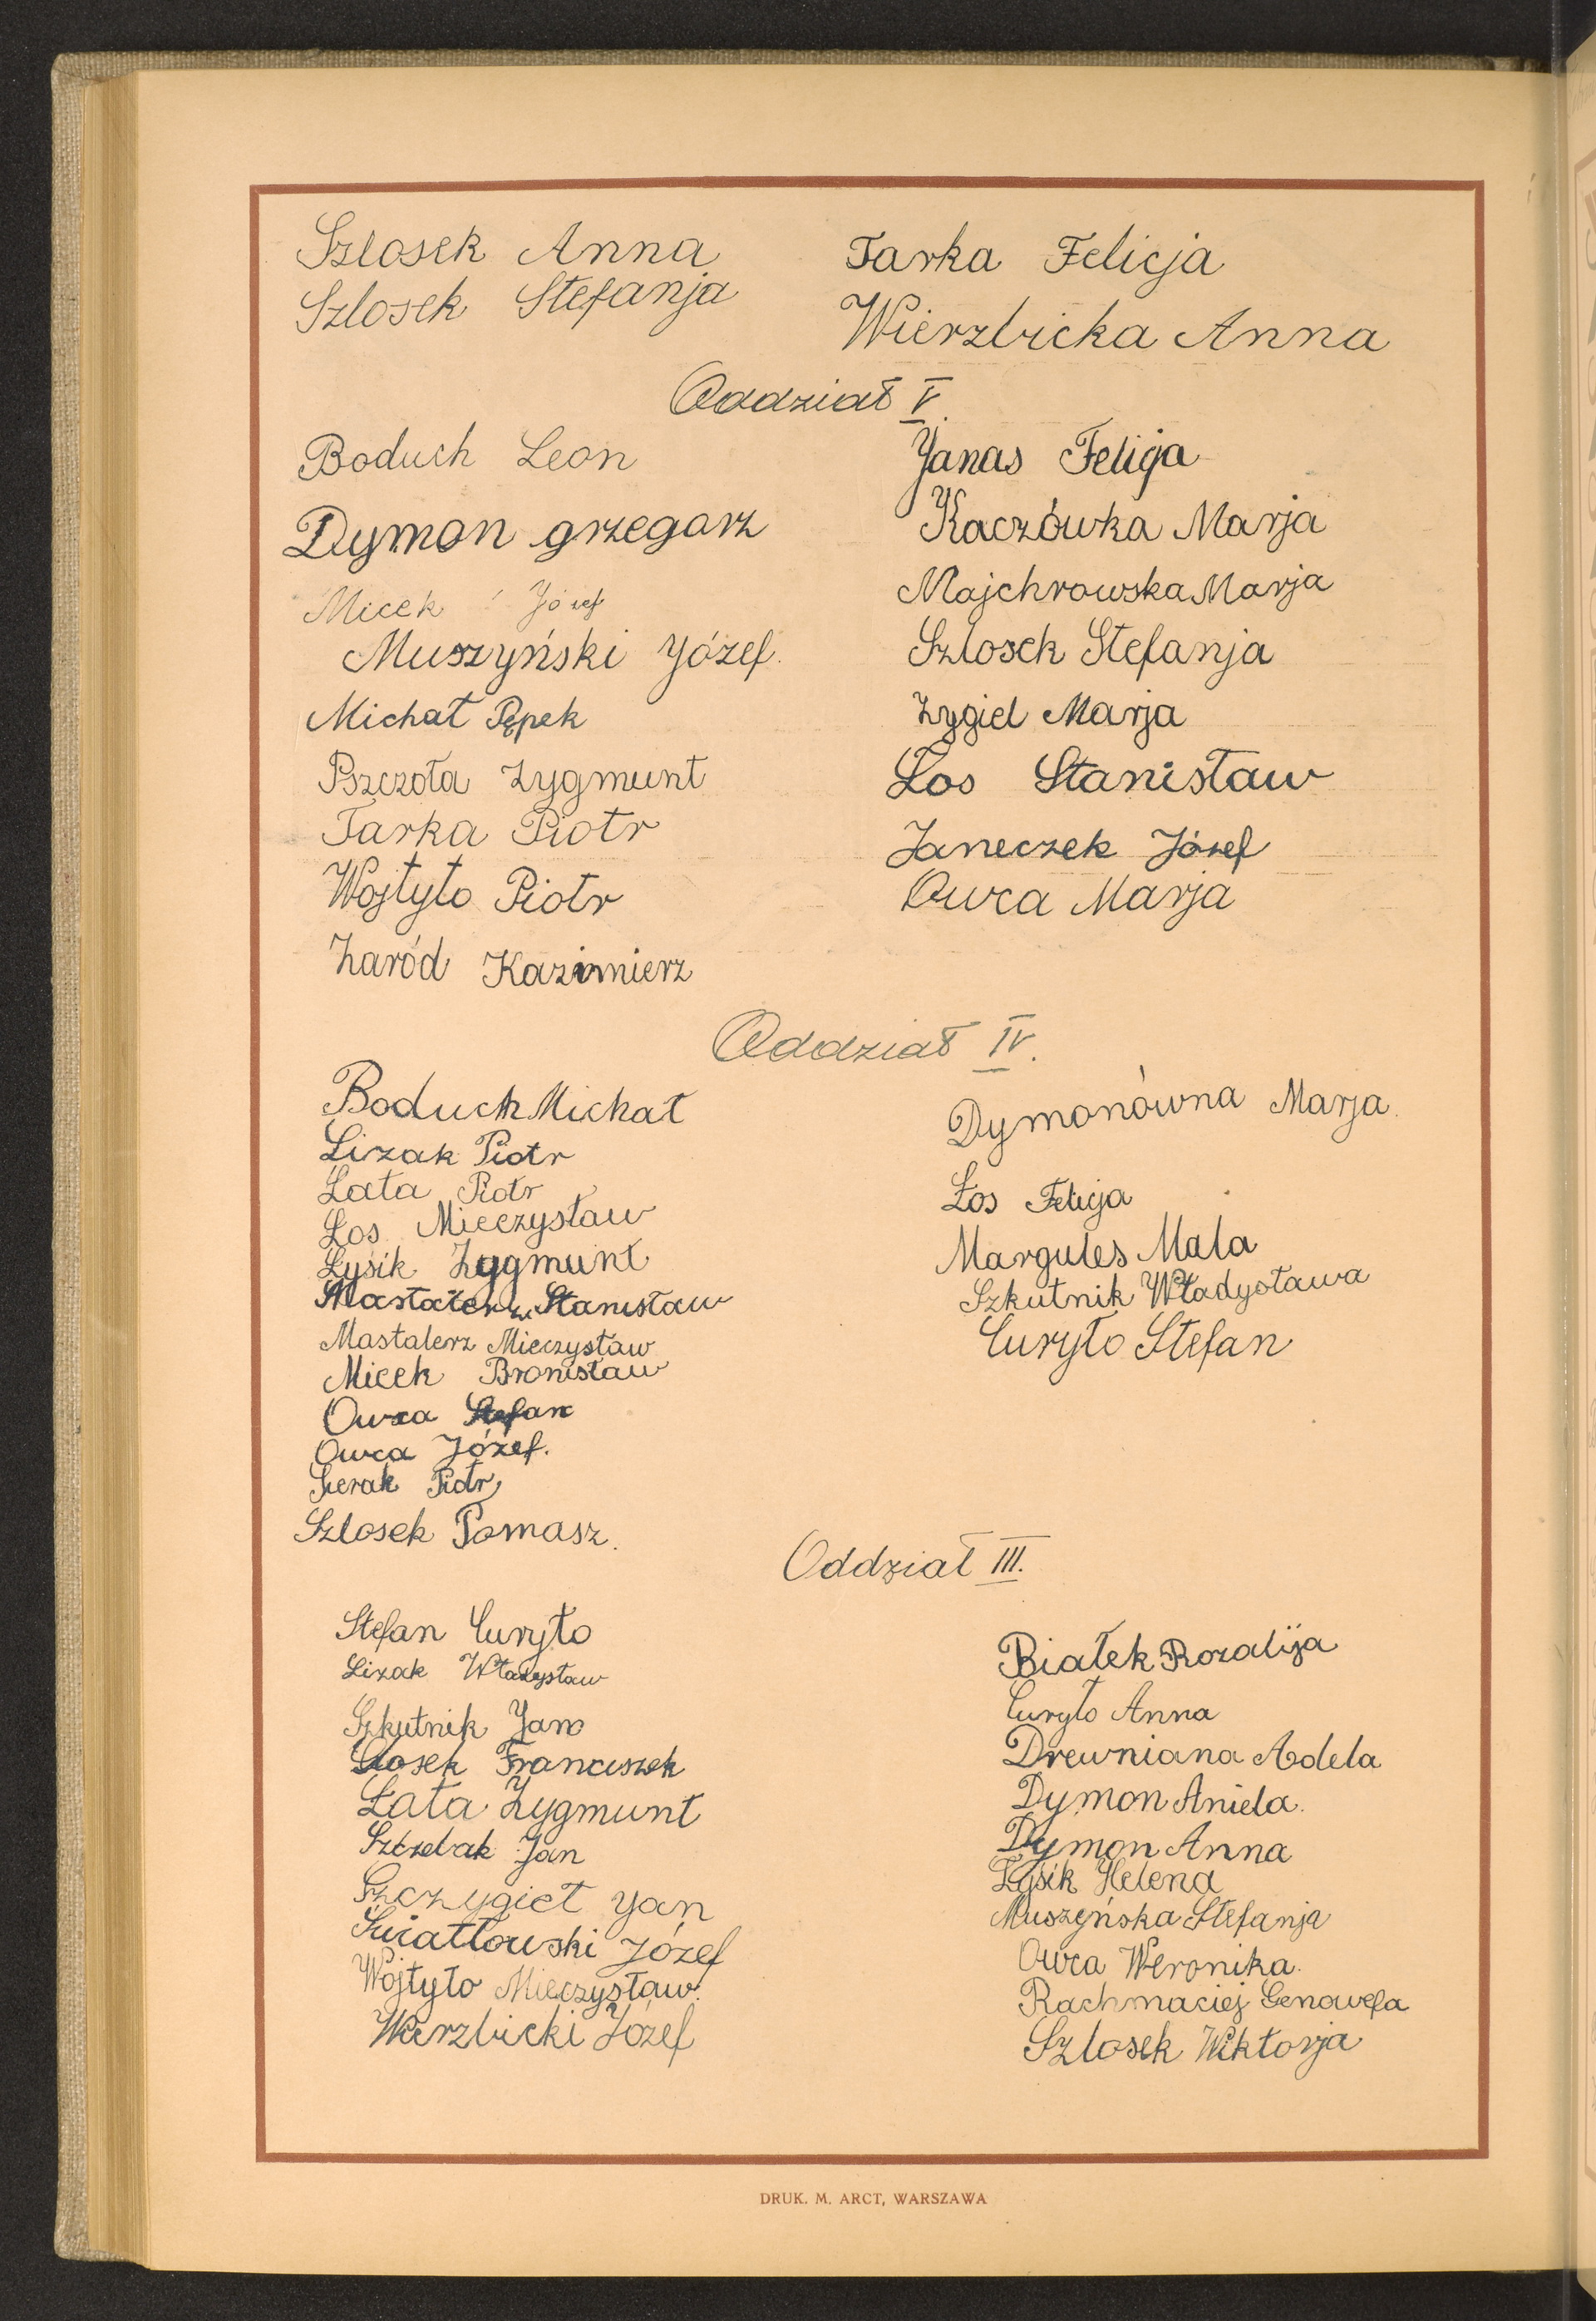 Szlosek Anna
Szlosek Stefanja
Tarka Felicja
Wierzbicka Anna
Oddział V.
Boduch Leon
Dymon grzegorz
Micek Józef
Muszyński Józef.
Michał Pępek
Pszczoła Zygmunt
Tarka Piotr
Wojtyło Piotr
Zaród Kazimierz
Janas Felicja
Kaczówka Marja
Majchrowska Marja
Szlosek Stefanja
Zygiel Marja
Łos Stanisław
Janeczek Józef
Owca Marja
Oddział IV.
Boduch Michał
Lizak Piotr
Łata Piotr
Łos Mieczysław
Łysik Zygmunt
Mastalerz Stanisław
Mastalerz Mieczysław
Micek Bronisław
Owca Stefan
Owca Józef.
Sierak Piotr
Szlosek Tomasz.
Dymonówna Marja.
Łos Felicja
Margules Mala
Szkutnik Władysława
Curyło Stefan
Oddział III.
Stefan Curyło
Lizak Władysław
Szkutnik Jan
Szlosek Franciszek
Łata Zygmunt
Szczebak Jan
Szczygieł Jan
Światłowski Józef
Wojtyło Mieczysław.
Wierzbicki Józef
Białek Rozalija
Curyło Anna
Drewniana Adela
Dymon Aniela.
Dymon Anna
Łysik Helena
Muszyńska Stefanja
Owca Weronika.
Rachmaciej Genowefa
Szlosek Wiktorja
DRUK. M. ARCT, WARSZAWA